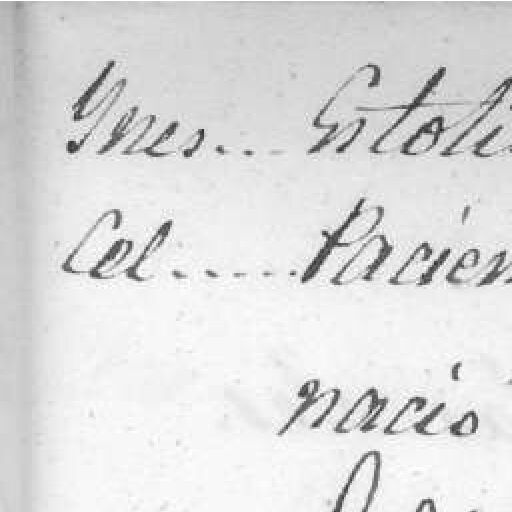 Ynes... Estoli
Cel...... Pacien
nació